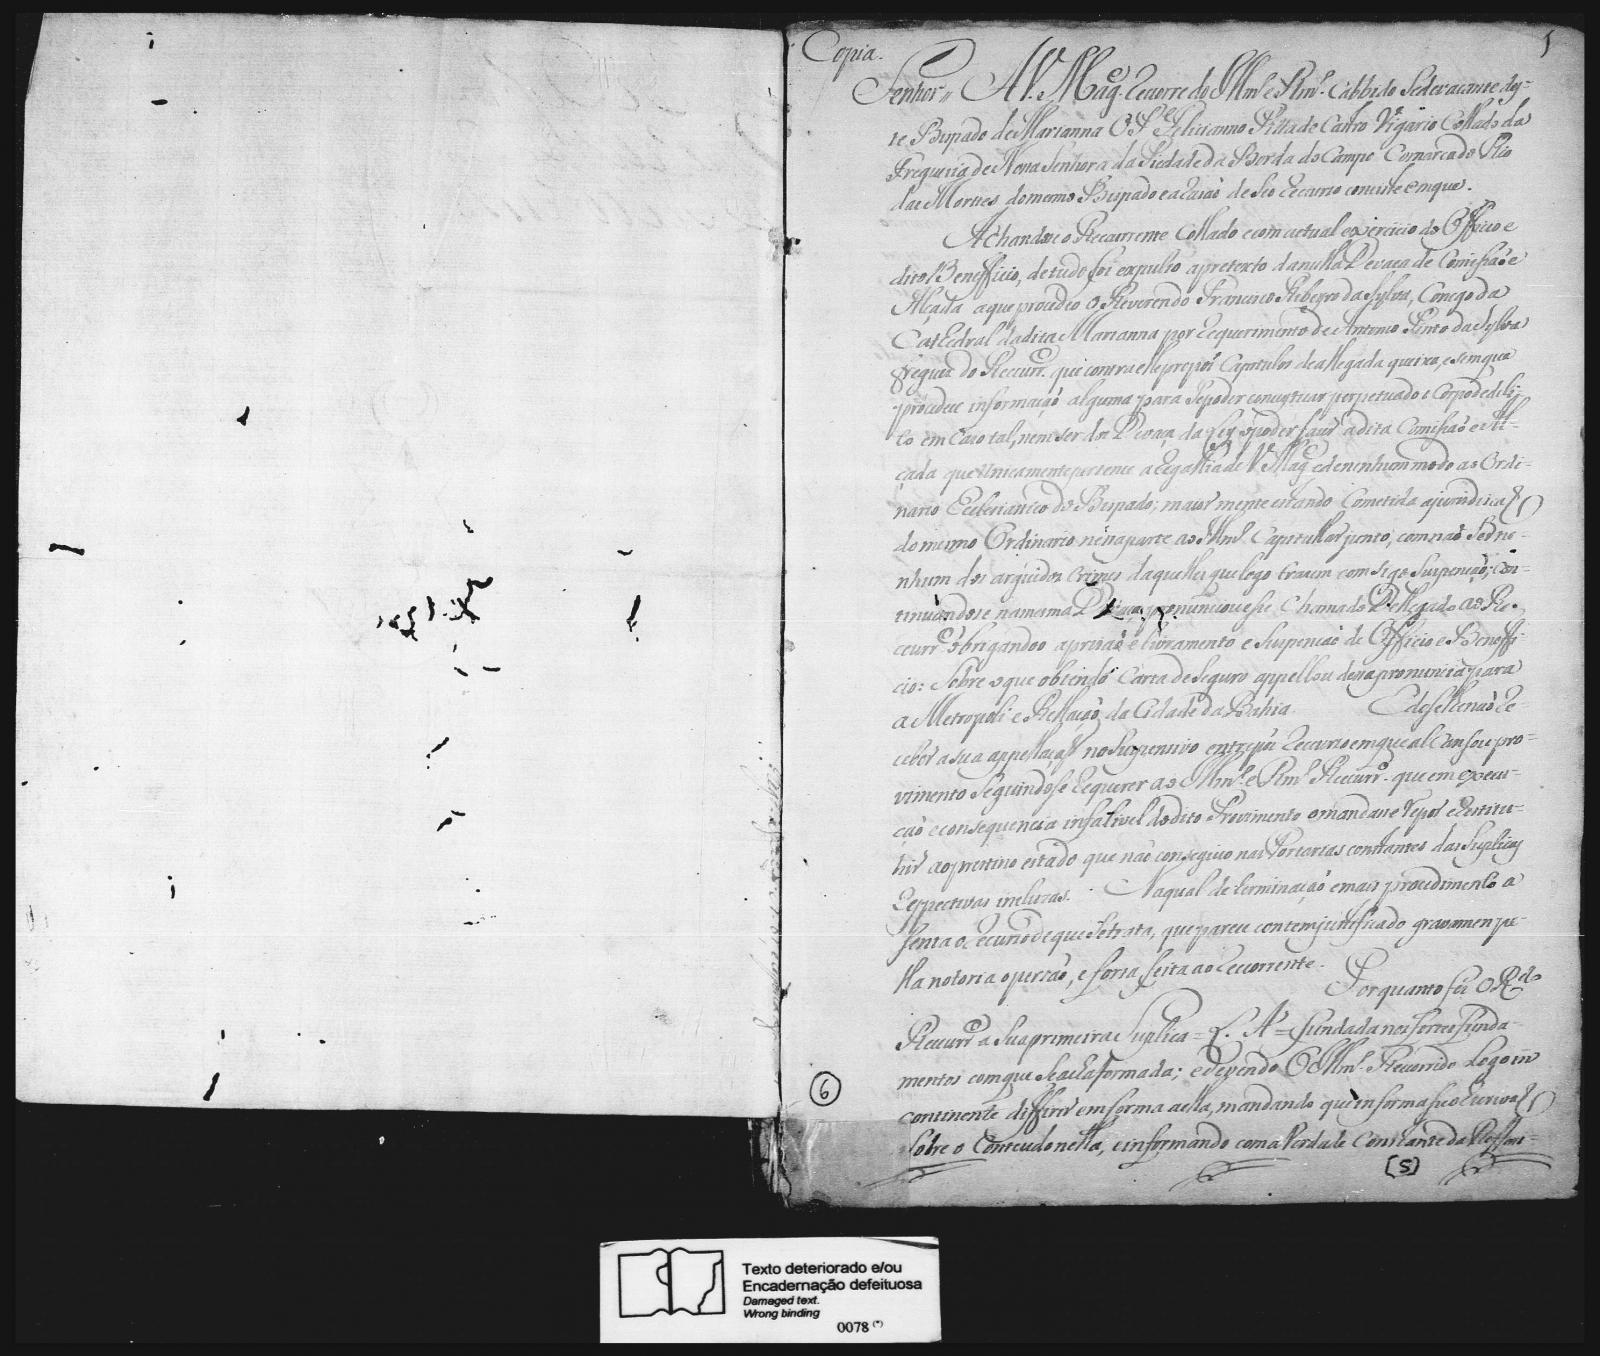 Copia.
1
Senhor,, A V. Mag.e Recorre do Illm.o e Rm.o Cabbido Sedevacante des-
te Bispado de Marianna O P.e Felicianno Pitta de Castro Vigario Collado da
Freguezia de Nossa Senhora da Piedade da Borda do Campo Comarca do Rio
das Mortes do mesmo Bispado e a Razaõ de seo Recurso conciste em que.
Achandose o Recorrente Collado e com actual exercicio do Officio e
dito Beneficio, de tudo foi expulso a pretexto da nulla Devaça de Comissaõ e
Alçada a que procedeo o Reverendo Francisco Ribeyro da Sylva, Conego da
Cathedral da dita Marianna por Requerimento de Antonio Pinto da Sylva
freguez do Recurr.e que contra elle propos Capitulos de allegada queixa, e sem que
procedece informaçaõ alguma para se poder conceytuar perpetuado o Corpo de deli-
to em Cazo tal, nem ser dos Devaça da Ley, o poder fazer a dita Comissaõ e Al-
çada que unicamente pertence a Regallia de V. Mag.e e de nenhum modo ao Ordi-
nario Eccleziastico do Bispado; maiormente estando Cometida a jurisdiçaõ
do mesmo Ordinario nesta parte ao Illm.o Capitullar junto, com naõ ser ne-
nhum dos arguidos crimes daquelles que logo trazem comsigo suspençaõ; con-
tinuandose na mesma Devaça, pronunciou esse chamado Dellegado ao Re-
curr.e obrigandoo a prizaõ e livramento e suspençaõ de Officio e Benefi-
cio: Sobre o que obtendo Carta de Seguro appellou dessa pronuncia para
a Metropoli e Rellaçaõ da Cidade da Bahia. E de se lhe naõ Re-
ceber a sua appellaçaõ no suspensivo entrepos Recurso em que alcansou pro-
vimento seguindose Requerer ao Illm.o e Rm.o Recurr.o que em execu-
çaõ e consequencia infalivel do dito Provimento o mandase repor e Restitu-
hir ao prestino estado que naõ consegiuo nas Portarias constantes das Suplicas
Respectivas incluzas. Na qual determinaçaõ e mais procedimento a
senta o Recurso de que se trata, que parece contem justificado gravamen pe-
lla notoria opersaõ, e forsa feita ao Recorrente.
Porquanto fes O R.do
Recurr.e a Sua primeira Suplica = f. A = fundada nos fortes funda-
mentos com que se acha formada; e devendo O Illm.o Recorrido Logo in
continente differir em forma a ella, mandando que informase o Escrivaõ
sobre o Conteudo nella, e informando com a Verdade Constante da Respos-
6
[5]
Texto deteriorado e/ou
Encadernação defeituosa
Damaged text.
Wrong binding
0078 (*)